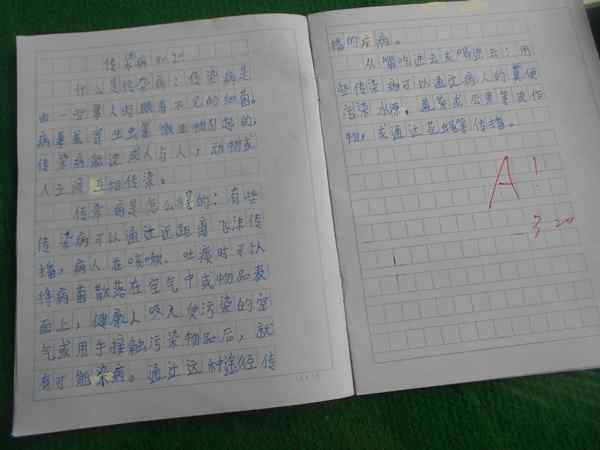 传染病 3.20
什么是传染病：传染病是
由一些常人肉眼看不见的细菌、
病毒或寄生虫等微生物引起的，
传染病能造成人与人，动物或
人之间互相传染。
传染病是怎么样的：有些
传染病可以通过近距离飞沫传
播，病人在咳嗽、吐痰时可以
将病菌散落在空气中或物品表
面上，健康人吸入使污染的空
气或用手接触污染物品后，就
有可能染病。通过这种途径传
播的疾病。
从嘴吃进去或喝进去：用
些传染病可以通过病人的粪便
污染水源，甚至或食农作
物，或通过苍蝇等传播。
A！
3.20